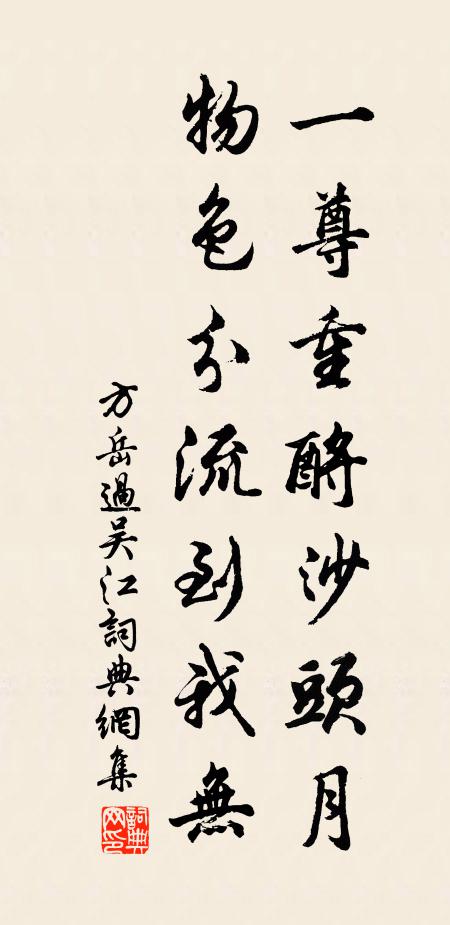 一尊重酹沙頭月
物色分流到我無
方岳過吴江詞典網集
詞典
网印